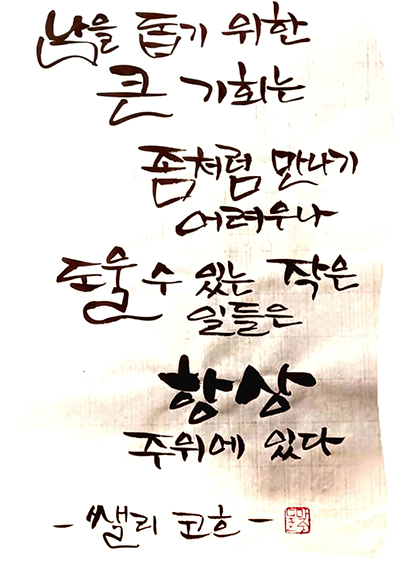 남을 돕기 위한
큰 기회는
좀처럼 만나기
어려우나
도울 수 있는 작은
일들은
항상
주위에 있다
- 쌜리 코흐 -